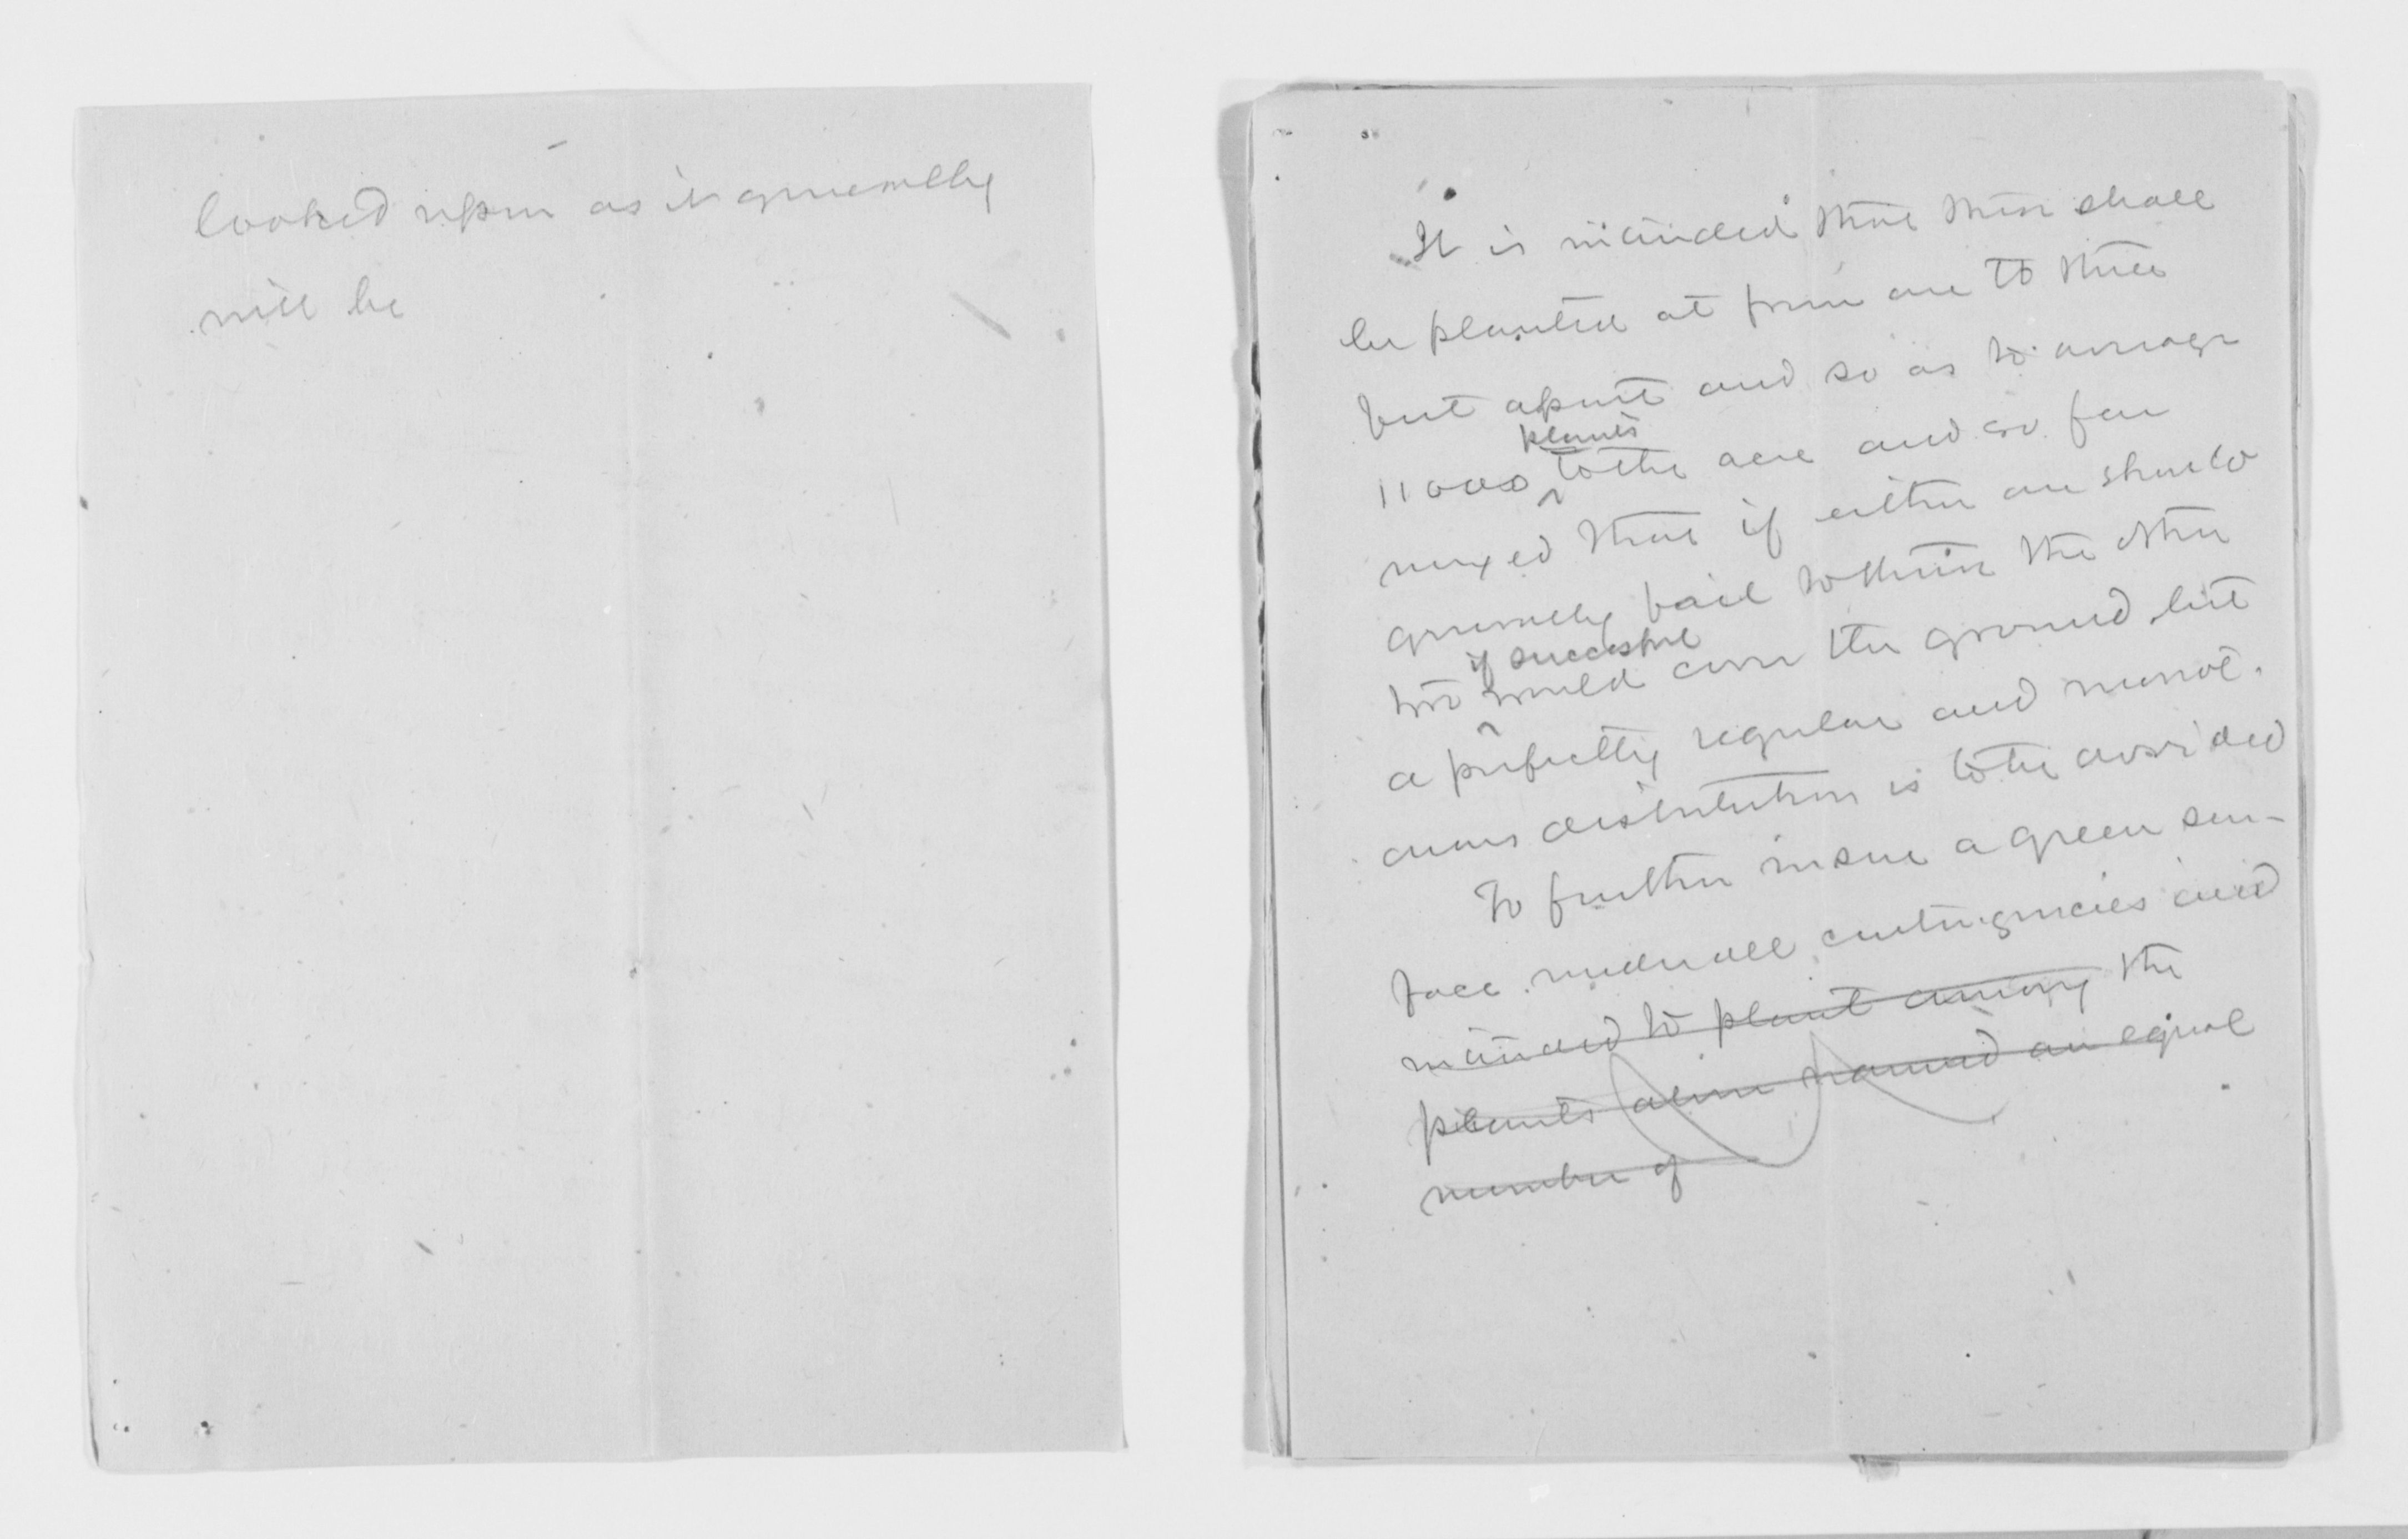 looked upon as it generally
will be
It is intended that these shall
be planted at from one to three
feet apart and so as to average
plants
11000 to the acre and so far
mixed that if either one should
generally fail to thrive the other
if successful
two would cover the ground but
a perfectly regular and monot-
onous distribution is to be avoided
To further insure a green sur-
face under all contingencies and
intended to plant among the
plants above named an equal
number of